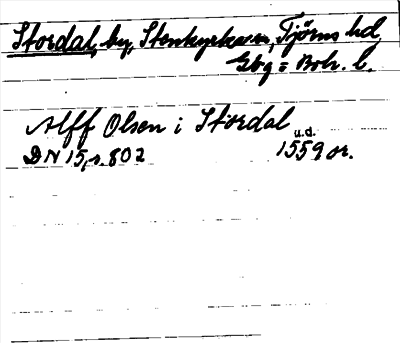 Stordal, by, Stenkyrka sn, Tjörns hd,
Gbg = Boh. l.
Alff Olsen i Stordal
u.d.
DN 15, s. 802 1559 or.